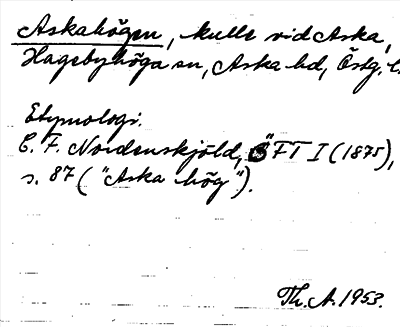 Askahögen, kulle vid Aska,
Hagebyhöga sn, Aska hd, Östg. l.
Etymologi.
C. F. Nordenskjöld, ÖFT I (1875),
s. 87 ("Aska hög").
Th. A. 1953.